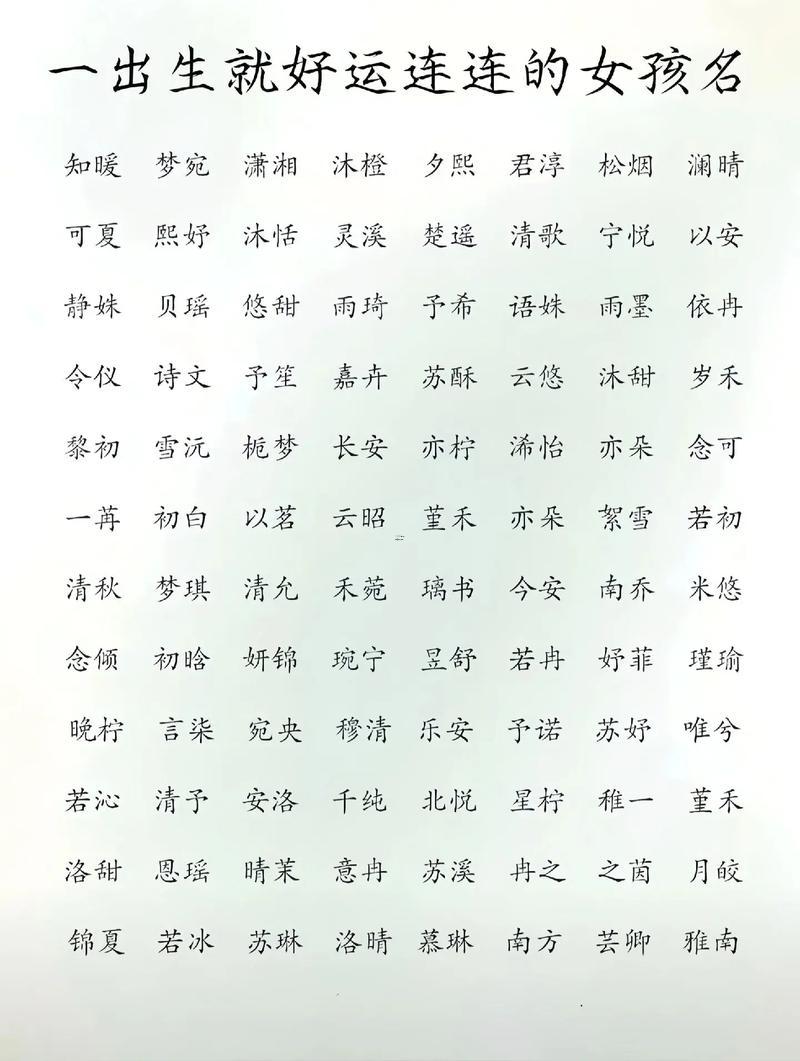 一出生就好运连连的女孩名
知暖 梦宛 潇湘 沐橙 夕熙 君淳 松烟 澜晴
可夏 熙妤 沐恬 灵溪 楚遥 清歌 宁悦 以安
静姝 贝瑶 悠甜 雨琦 予希 语姝 雨墨 依冉
令仪 诗文 予笙 嘉卉 苏酥 云悠 沐甜 岁禾
黎初 雪沅 栀梦 长安 亦柠 浠怡 亦朵 念可
一苒 初白 以茗 云昭 堇禾 亦朵 絮雪 若初
清秋 梦琪 清允 禾菀 璃书 今安 南乔 米悠
念倾 初晗 妍锦 琬宁 昱舒 若冉 妤菲 瑾瑜
晚柠 言柒 宛央 穆清 乐安 予诺 苏妤 唯兮
若沁 清予 安洛 千纯 北悦 星柠 稚一 堇禾
洛甜 恩瑶 晴茉 意冉 苏溪 冉之 之茵 月皎
锦夏 若冰 苏琳 洛晴 慕琳 南方 芸卿 雅南